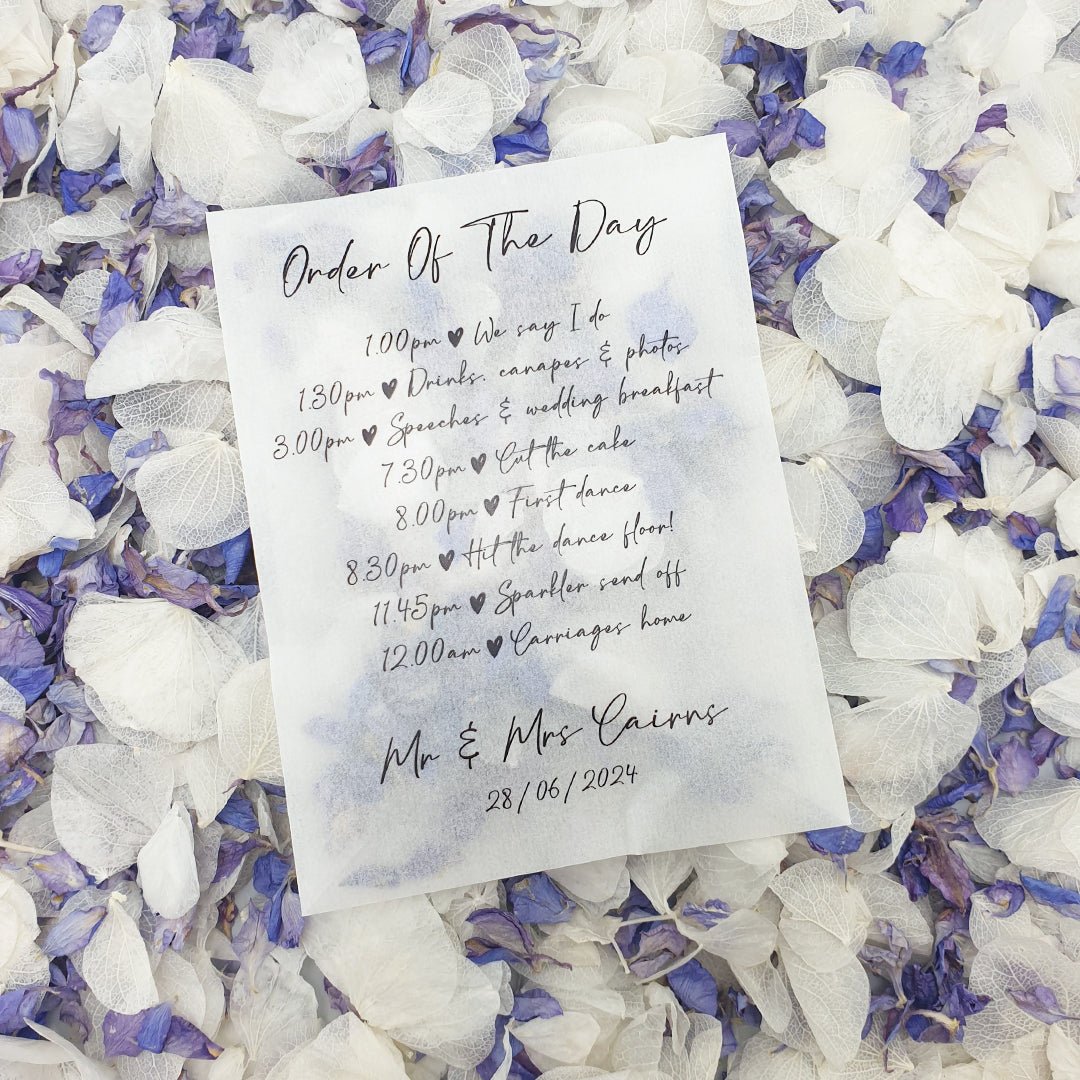 Order Of The Day
1.00pm ♥ We say I do
1.30pm ♥ Drinks, canapes & photos
3.00pm ♥ Speeches & wedding breakfast
7.30pm ♥ Cut the cake
8.00pm ♥ First dance
8.30pm ♥ Hit the dance floor!
11.45pm ♥ Sparkler send off
12.00am ♥ Carriages home
Mr & Mrs Cairns
28/06/2024